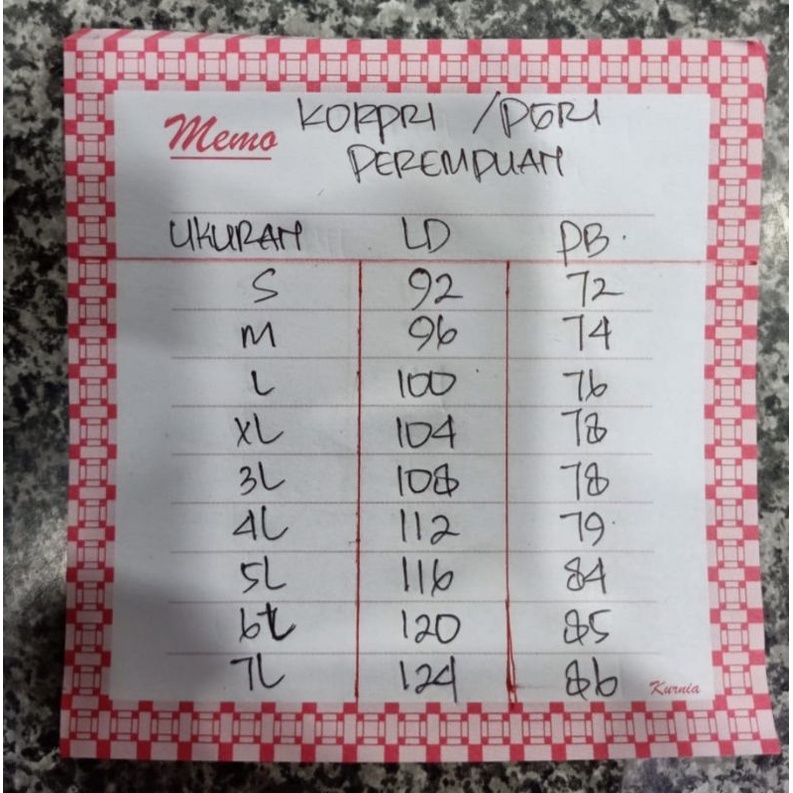 Memo KORPRI / PGRI
PEREMPUAN
UKURAN LD PB.
S 92 72
M 96 74
L 100 76
XL 104 78
3L 108 78
4L 112 79
5L 116 84
6L 120 85
7L 124 86
Kurnia